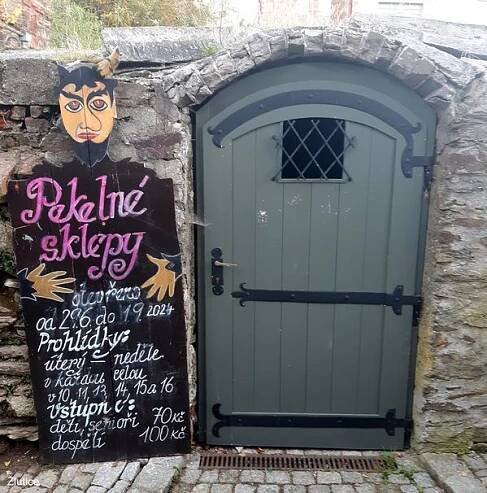 Pekelné
sklepy
otevřeno
od 29.6. do 1.9. 2024
Prohlídky:
úterý – neděle
v každou celou
v 10, 11, 13, 14, 15 a 16
vstupné:
děti, senioři 70Kč
dospělí 100Kč
Žlutice